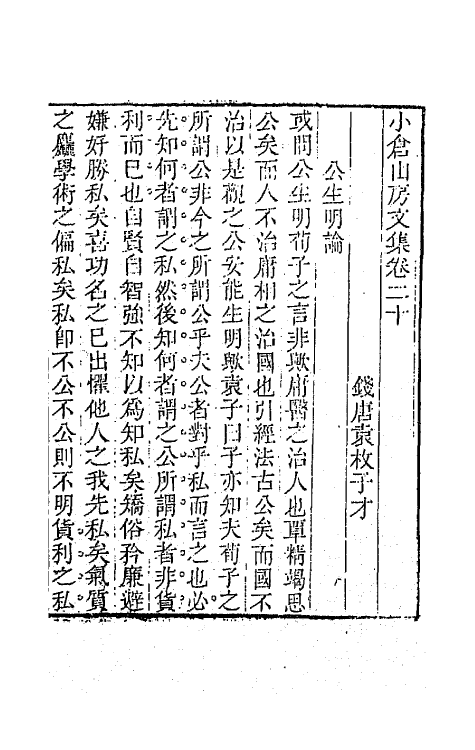 小倉山房文集卷二十
錢唐袁枚子才
公生明論
或問公生明荀子之言非歟庸醫之治人也覃精竭思
公矣而人不治庸相之治國也引經法古公矣而國不
治以是觀之公安能生明歟袁子曰子亦知夫荀子之
所謂公非今之所謂公乎夫公者對乎私而言之也必
先知何者謂之私然後知何者謂之公所謂私者非貨
利而已也自賢自智強不知以爲知私矣矯俗矜廉避
嫌好勝私矣喜功名之已出懼他人之我先私矣氣質
之麤學術之偏私矣私卽不公不公則不明貨利之私